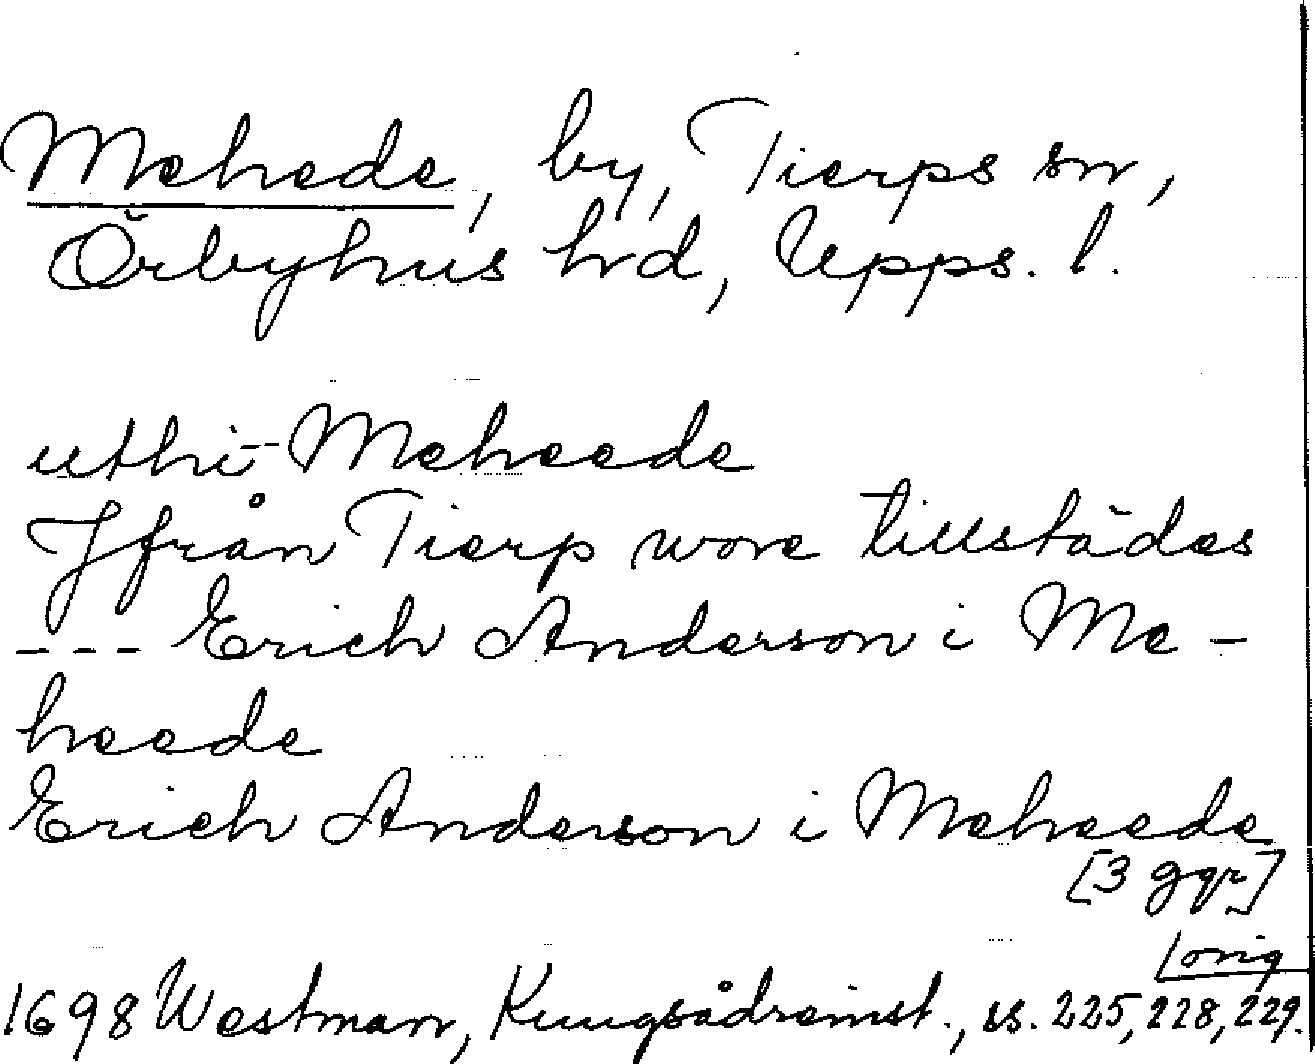 Mehede, by, Tierps sn,
Örbyhus hrd, Upps. l.
uthi Meheede
Jfrån Tierp wore tillstädes
--- Erich Anderson i Me-
heede
Erich Anderson i Meheede
[3 ggr]
orig
1698 Westman, Kungsådreinst., ss. 225, 228, 229.